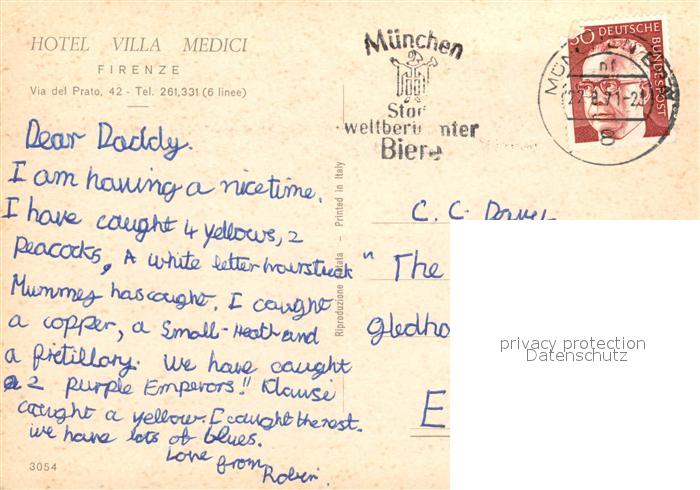 HOTEL VILLA MEDICI
FIRENZE
Via del Prato, 42 - Tel. 261,331 (6 linee)
Dear Daddy.
I am having a nice time.
I have caught 4 yellows, 2
Peacocks, A white letter hairstreak
Mummey has caught. I caught
a copper, a Small-Heath and
a fretillary. We have caught
2 purple Emperors!! Klausi
caught a yellow. I caught the rest.
we have lots of blues.
Love from
Robin.
3054
Riproduzione vietata - Printed in Italy
München
Stadt
weltberühmter
Biere
DEUTSCHE BUNDESPOST
MÜNCHEN
22.8.71-21
8
C. C.
" The
gledho
E
privacy protection
Datenschutz